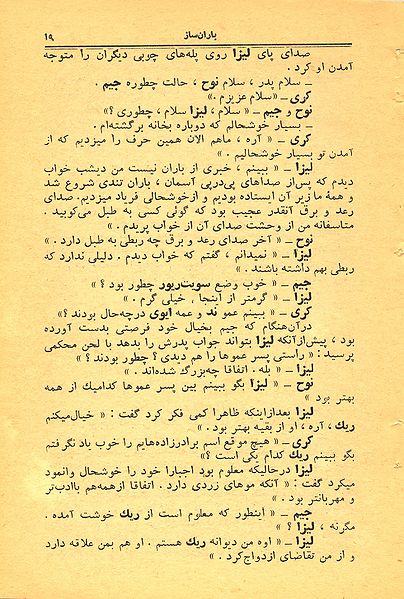 باران‌ساز ۱۹
صدای پای لیزا روی پله‌های چوبی دیگران را متوجه
آمدن او کرد.
ــ سلام پدر، سلام نوح، حالت چطوره جیم.
کری ــ «سلام عزیزم.»
نوح و جیم ــ «سلام، لیزا سلام، چطوری؟»
ــ بسیار خوشحالم که دوباره بخانه برگشته‌ام.
کری ــ «آره، ماهم الان همین حرف را میزدیم که از
آمدن تو بسیار خوشحالیم.»
لیزا ــ «ببینم، خبری از باران نیست من دیشب خواب
دیدم که پس‌از صداهای پی‌درپی آسمان، باران تندی شروع شد
و همهٔ ما زیر آن ایستاده بودیم و ازخوشحالی فریاد میزدیم. صدای
رعد و برق آنقدر عجیب بود که گوئی کسی به طبل می‌کوبید.
متاسفانه من از وحشت صدای آن از خواب پریدم.»
نوح ــ «آخر صدای رعد و برق چه ربطی به طبل دارد.»
لیزا ــ «نمیدانم، گفتم که خواب دیدم. دلیلی ندارد که
ربطی بهم داشته باشند.»
جیم ــ «خوب وضع سویت‌ریور چطور بود؟»
لیزا ــ «گرمتر از اینجا، خیلی گرم.»
کری ــ «ببینم عمو ند و عمه ایوی درچه‌حال بودند؟»
درآن‌هنگام که جیم بخیال خود فرصتی بدست آورده
بود، پیش‌ازآنکه لیزا بتواند جواب پدرش را بدهد با لحن محکمی
پرسید: «راستی پسر عموها را هم دیدی؟ چطور بودند؟»
لیزا ــ «بله. اتفاقا چه‌بزرگ شده‌اند.»
نوح ــ «لیزا بگو ببینم بین پسر عموها کدامیك از همه
بهتر بود»
لیزا بعدازاینکه ظاهرا کمی فکر کرد گفت: «خیال‌میکنم
ریك، آره، او از بقیه بهتر بود.»
کری ــ «هیچ موقع اسم برادرزاده‌هایم را خوب یاد نگرفتم
بگو ببینم ریك کدام یکی است؟»
لیزا درحالیکه معلوم بود اجبارا خود را خوشحال وانمود
میکرد گفت: «آنکه موهای زردی دارد. اتفاقا ازهمه‌هم باادب‌تر
و مهربانتر بود.»
جیم ــ «اینطور که معلوم است از ریك خوشت آمده.
مگرنه، لیزا؟»
لیزا ــ «اوه من دیوانه ریك هستم. او هم بمن علاقه دارد
و از من تقاضای ازدواج‌کرد.»